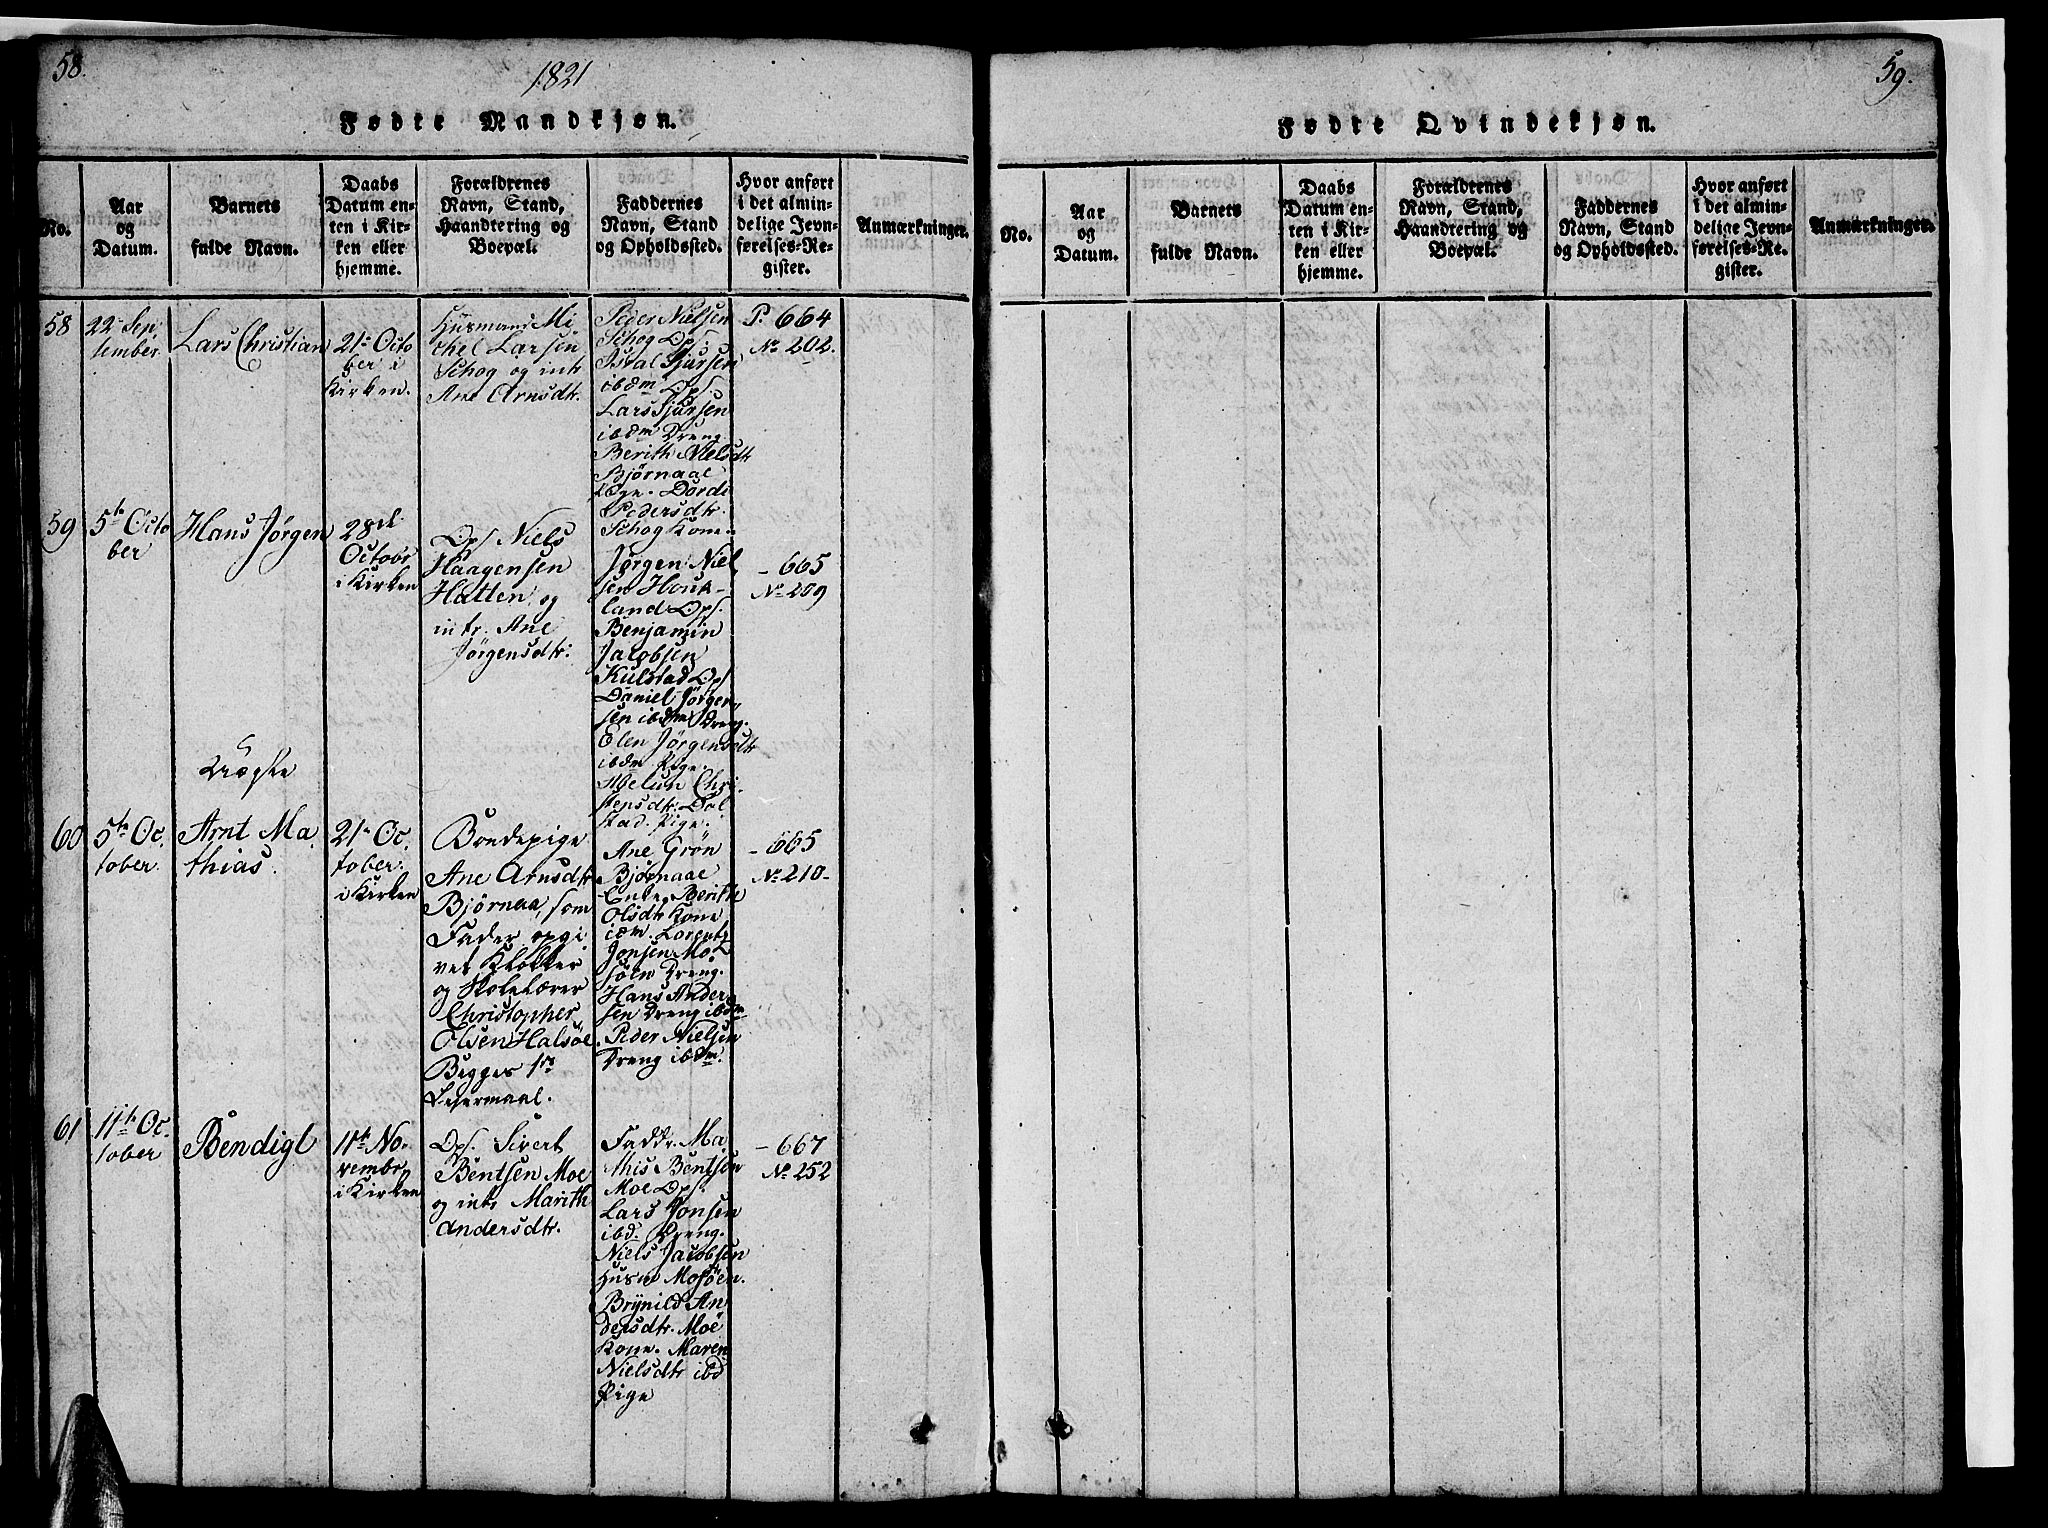 58.
1821
Fødte Mandkjøn.
No.
Aar
og
Datum.
Barnets
fulde Navn.
Daabs
Datum en-
ten i Kir-
ken eller
hjemme.
Forældrenes
Navn, Stand,
Haandtering og
Boepæl.
Faddernes
Navn, Stand
og Opholdssted.
Hvor anført
i det almin-
delige Jevn-
førelses-Re-
gister.
Anmærkninger.
58
22 Sep
tember
Lars Christian
21 Octo
ber i
Kirken.
Huusmand Mi-
chel Larsen
Schog og intr
Ane Arnsdtr.
Peder Nielsen
Schog Ops.
Isral Sjursen
ibdm Ops
Lars Sjursen
ibdm Dreng
Berith Nielsdtr
Bjørnaae
Pige. Dordi
Pedersdtr.
Schog Kone
P. 664
No 202.
59
5te Octo
ber
Hans Jørgen
28de
Octobr
i Kirken
Ops Niels
Haagensen
Hatten og
intr. Ane
Jørgensdtr:
Jørgen Niel
sen Houk-
land Ops.
Benjamin
Jacobsen
Kulstad Ops
Daniel Jørgen
sen ibdm Dreng.
Elen Jørgensdtr
ibdm Pige.
Chri
stensdtr: Dol
stad. Pige.
- 665
No 209
Uægte
60
5te Oc.
tober.
Arnt Ma.
thias.
21 Oc.
tober.
i Kirken
Bondepige
Ane Arnsdtr
Bjørnaa, som
Fader opgi
ves Klokker
og Skolelærer
Christopher
Olsen Halsøe
Begges 1ste
Leiermaal.
Ane Grøn
Bjørnaae
Enke, Berith
Olsdtr Kone
ibdm. Lorentz
Jonsen Mo
søen Dreng.
Hans Ander
sen Dreng ibdm
Peder Nielsen
Dreng ibdm.
- 665
No 210-
61
11te Oc.
tober
Bendigt
11te No.
vembr
i Kirken
Ops. Sivert
Bentsen Moe
og intr Marith
Andersdtr.
Faddr. Ma
this Bentsen
Moe Ops.
Lars Jonsen
ibd. Dreng.
Niels Jacobsen
Husm Mosøen.
Brynild An
dersdtr. Moe
Kone. Maren
Nielsdtr ibd
Pige
- 667
No 252
59.
Fødte Qvindekjøn.
No.
Aar
og
Datum.
Barnets
fulde Navn.
Daabs
Datum en-
ten i Kir-
ken eller
hjemme.
Forældrenes
Navn, Stand,
Haandtering og
Boepæl.
Faddernes
Navn, Stand
og Opholdssted.
Hvor anført
i det almin-
delige Jevn-
førelses-Re-
gister.
Anmærkninger.